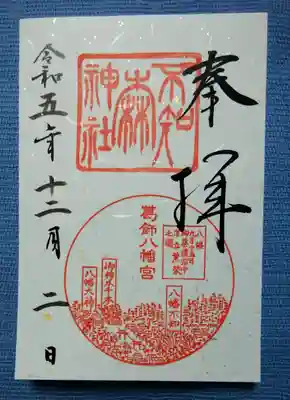 奉拝
不知
森
神社
葛飾八幡宮
八幡不知
八幡大神
令和五年十二月二日